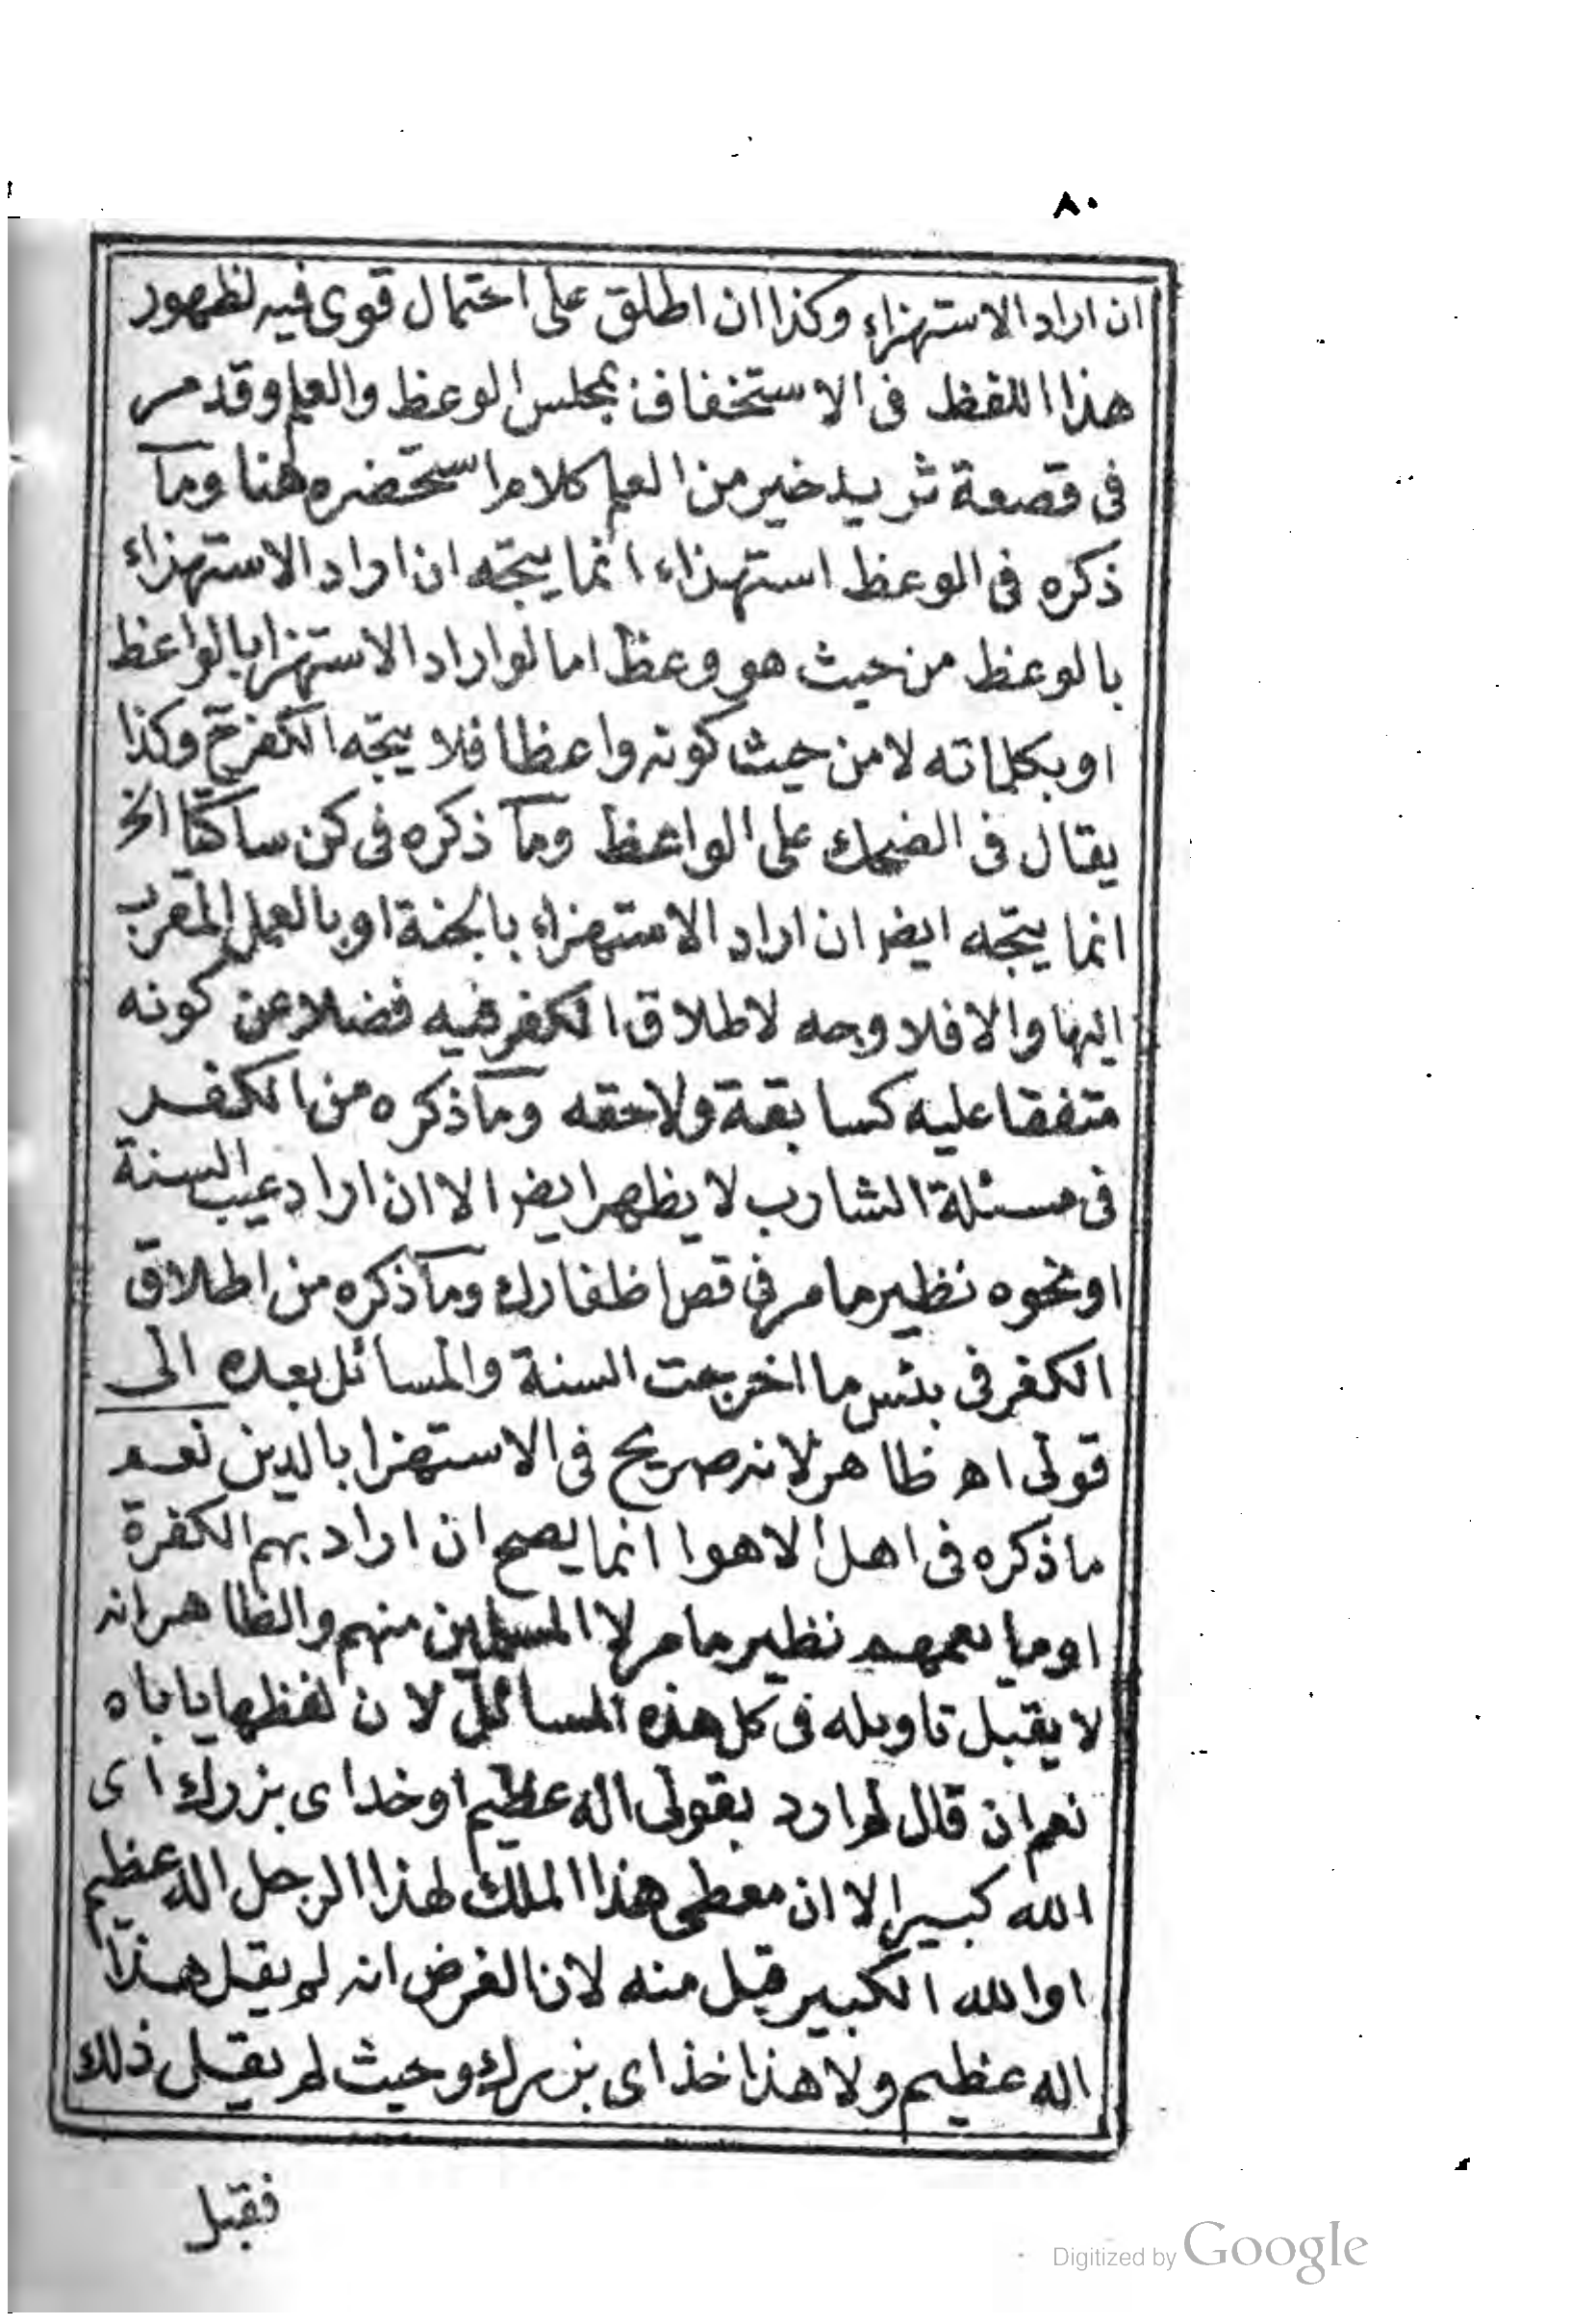 ٨٠
ان اراد الاستهزاء وكذا ان اطلق على احتمال قوى فيه لظهور
هذا اللفظ فى الاستخفاف بمجلس الوعظ والعلم وقد مر
فى قصعة ثريد خير من العلم كلام استحضره هنا وما
ذكره فى الوعظ استهزاء انما يتجه ان اراد الاستهزاء
بالوعظ من حيث هو وعظ اما لو اراد الاستهزا بالواعظ
او بكلماته لا من حيث كونه واعظا فلا يتجه الكفر ح وكذا
يقال فى الضحك على الواعظ وما ذكره فى كن ساكتا الخ
انما يتجه ايضا ان اراد الاستهزاء بالجنة او بالعمل المقرب
اليها والا فلا وجه لاطلاق الكفر فيه فضلا عن كونه
متفقا عليه كسابقة ولاحقه وما ذكره من الكفر
فى مسئلة الشارب لا يظهر ايضا الا ان اراد عيب السنة
او نحوه نظير ما مر فى قص اظفارك وما ذكره من اطلاق
الكفر فى بئس ما اخرجت السنة والمسائل بعده الى
قولى اه ظاهر لانه صريح فى الاستهزا بالدين نعم
ما ذكره فى اهل الاهوا انما يصح ان اراد بهم الكفرة
او ما يعمهم نظير ما مر لا المسلمين منهم والظاهر انه
لا يقبل تاويله فى كل هذه المسائل لان لفظها ياباه
نعم ان قال لم ارد بقولى اله عظيم او خداى بزرك اى
الله كبير الا ان معطى هذا الملك لهذا الرجل اله عظيم
او الله الكبير قبل منه لان الفرض انه لم يقل هذا
اله عظيم ولا هذا خذاى بزرك وحيث لم يقل ذلك
فقبل
Digitized by Google